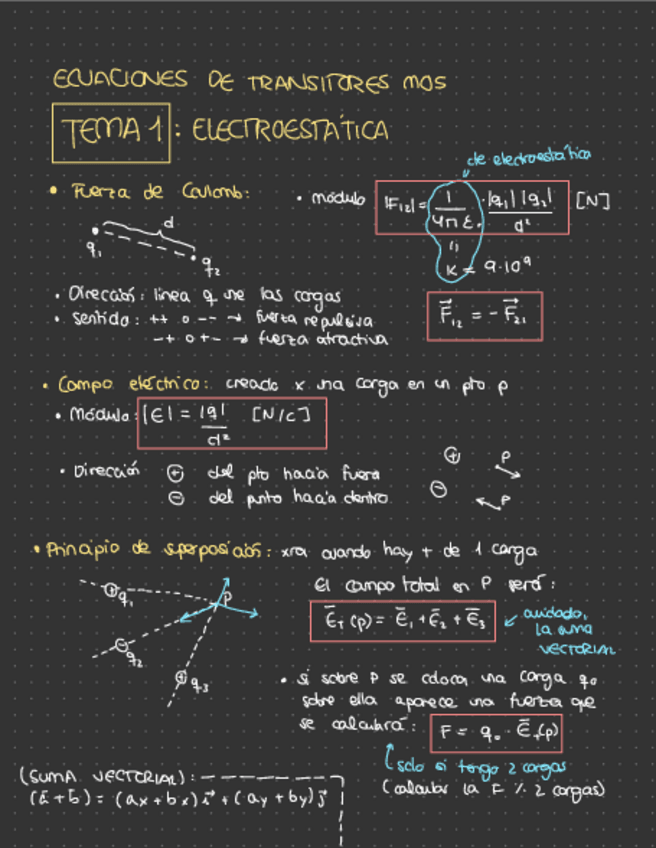 ECUACIONES DE TRANSITORES MOS
TEMA 1: ELECTROESTÁTICA
de electroestática
• Fuerza de Coulomb:
• módulo |F₁₂| = 1/4πε₀ · |q₁| |q₂|/d² [N]
d
q₁
q₂
K = 9·10⁹
• Dirección: línea q une las cargas
• sentido: ++ o -- → fuerza repulsiva
-+ o +- → fuerza atractiva
F⃗₁₂ = - F⃗₂₁
• Campo eléctrico: creado x una carga en un pto p
• Módulo: |E| = |q|/d² [N/C]
• Dirección ⊕ del pto hacia fuera
⊖ del punto hacia dentro
⊕ P
⊖ P
• Principio de superposición: xra cuando hay + de 1 carga
El campo total en P será:
⊕ q₁
P
⊖ q₂
⊕ q₃
E̅ₜ(p) = E̅₁ + E̅₂ + E̅₃
cuidado,
la suma
VECTORIAL
• si sobre P se coloca una carga q₀
sobre ella aparece una fuerza que
se calculará: F = q₀ · E̅ₜ(p)
solo si tengo 2 cargas
(calcular la F % 2 cargas)
(SUMA VECTORIAL):
(a̅+b̅) = (ax+bx)i⃗ + (ay+by)j⃗